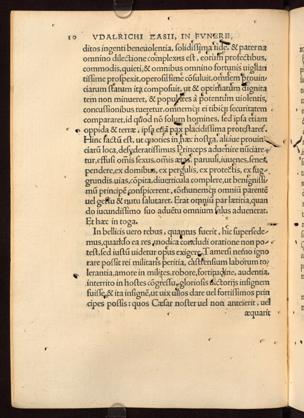 10 VDALRICHI ZASII, IN FVNERE,
ditos ingenti beneuolentia, solidissima fide, & paterna
omnino dilectione complexus est, eorum profectibus,
commodis, quieti, & omnibus omnino fortunis uigilan
tissime prospexit, operosissime consuluit, omnem prouin
ciarum statum ita composuit, ut & optimatum dignita
tem non minueret, & populares a potentum uiolentijs,
concussionibus tueretur, omnemque tibique securitatem
compararet, id quod non solum homines, sed ipsa etiam
oppida & terræ, ipsa etiam pax placidissima protestaret.
Hinc factum est, ut quoties in hæc nostra, aliaue prouin
ciarum loca, desyderatissimus Princeps aduenire nunciare
tur, effusi omis sexus, omis ætas, paruuli, iuuenes, senes,
pendere, ex domibus, ex pergulis, ex proiectis, ex sug
grundis, opida, diuerticula complere, ut benignissi
mum principem conspicerent, communemque omnium parentem
uel gestu & nutu salutaret. Erat omnium par lætitia, quan
do iucundissimo suo aduentu omnium salus adueneraret.
Et hæc in toga.
In bellicis uero rebus, quantus fuerit, hic supersede
mus, quando ea res modica concludi oratione non po
test, sed iustum uidetur opus exigere. Tametsi nemo igno
rare possit rei militaris peritia, castrensium laborum to
lerantia, amore in milites, robore, fortitudine, audentia,
interrito in hostes congressu, gloriosis uictorijs insignem
fuisse, & ita insignem, ut uix ullos dare uel fortissimos prin
cipes possis: quos Cæsar noster uel non anteierit, uel
æquarit